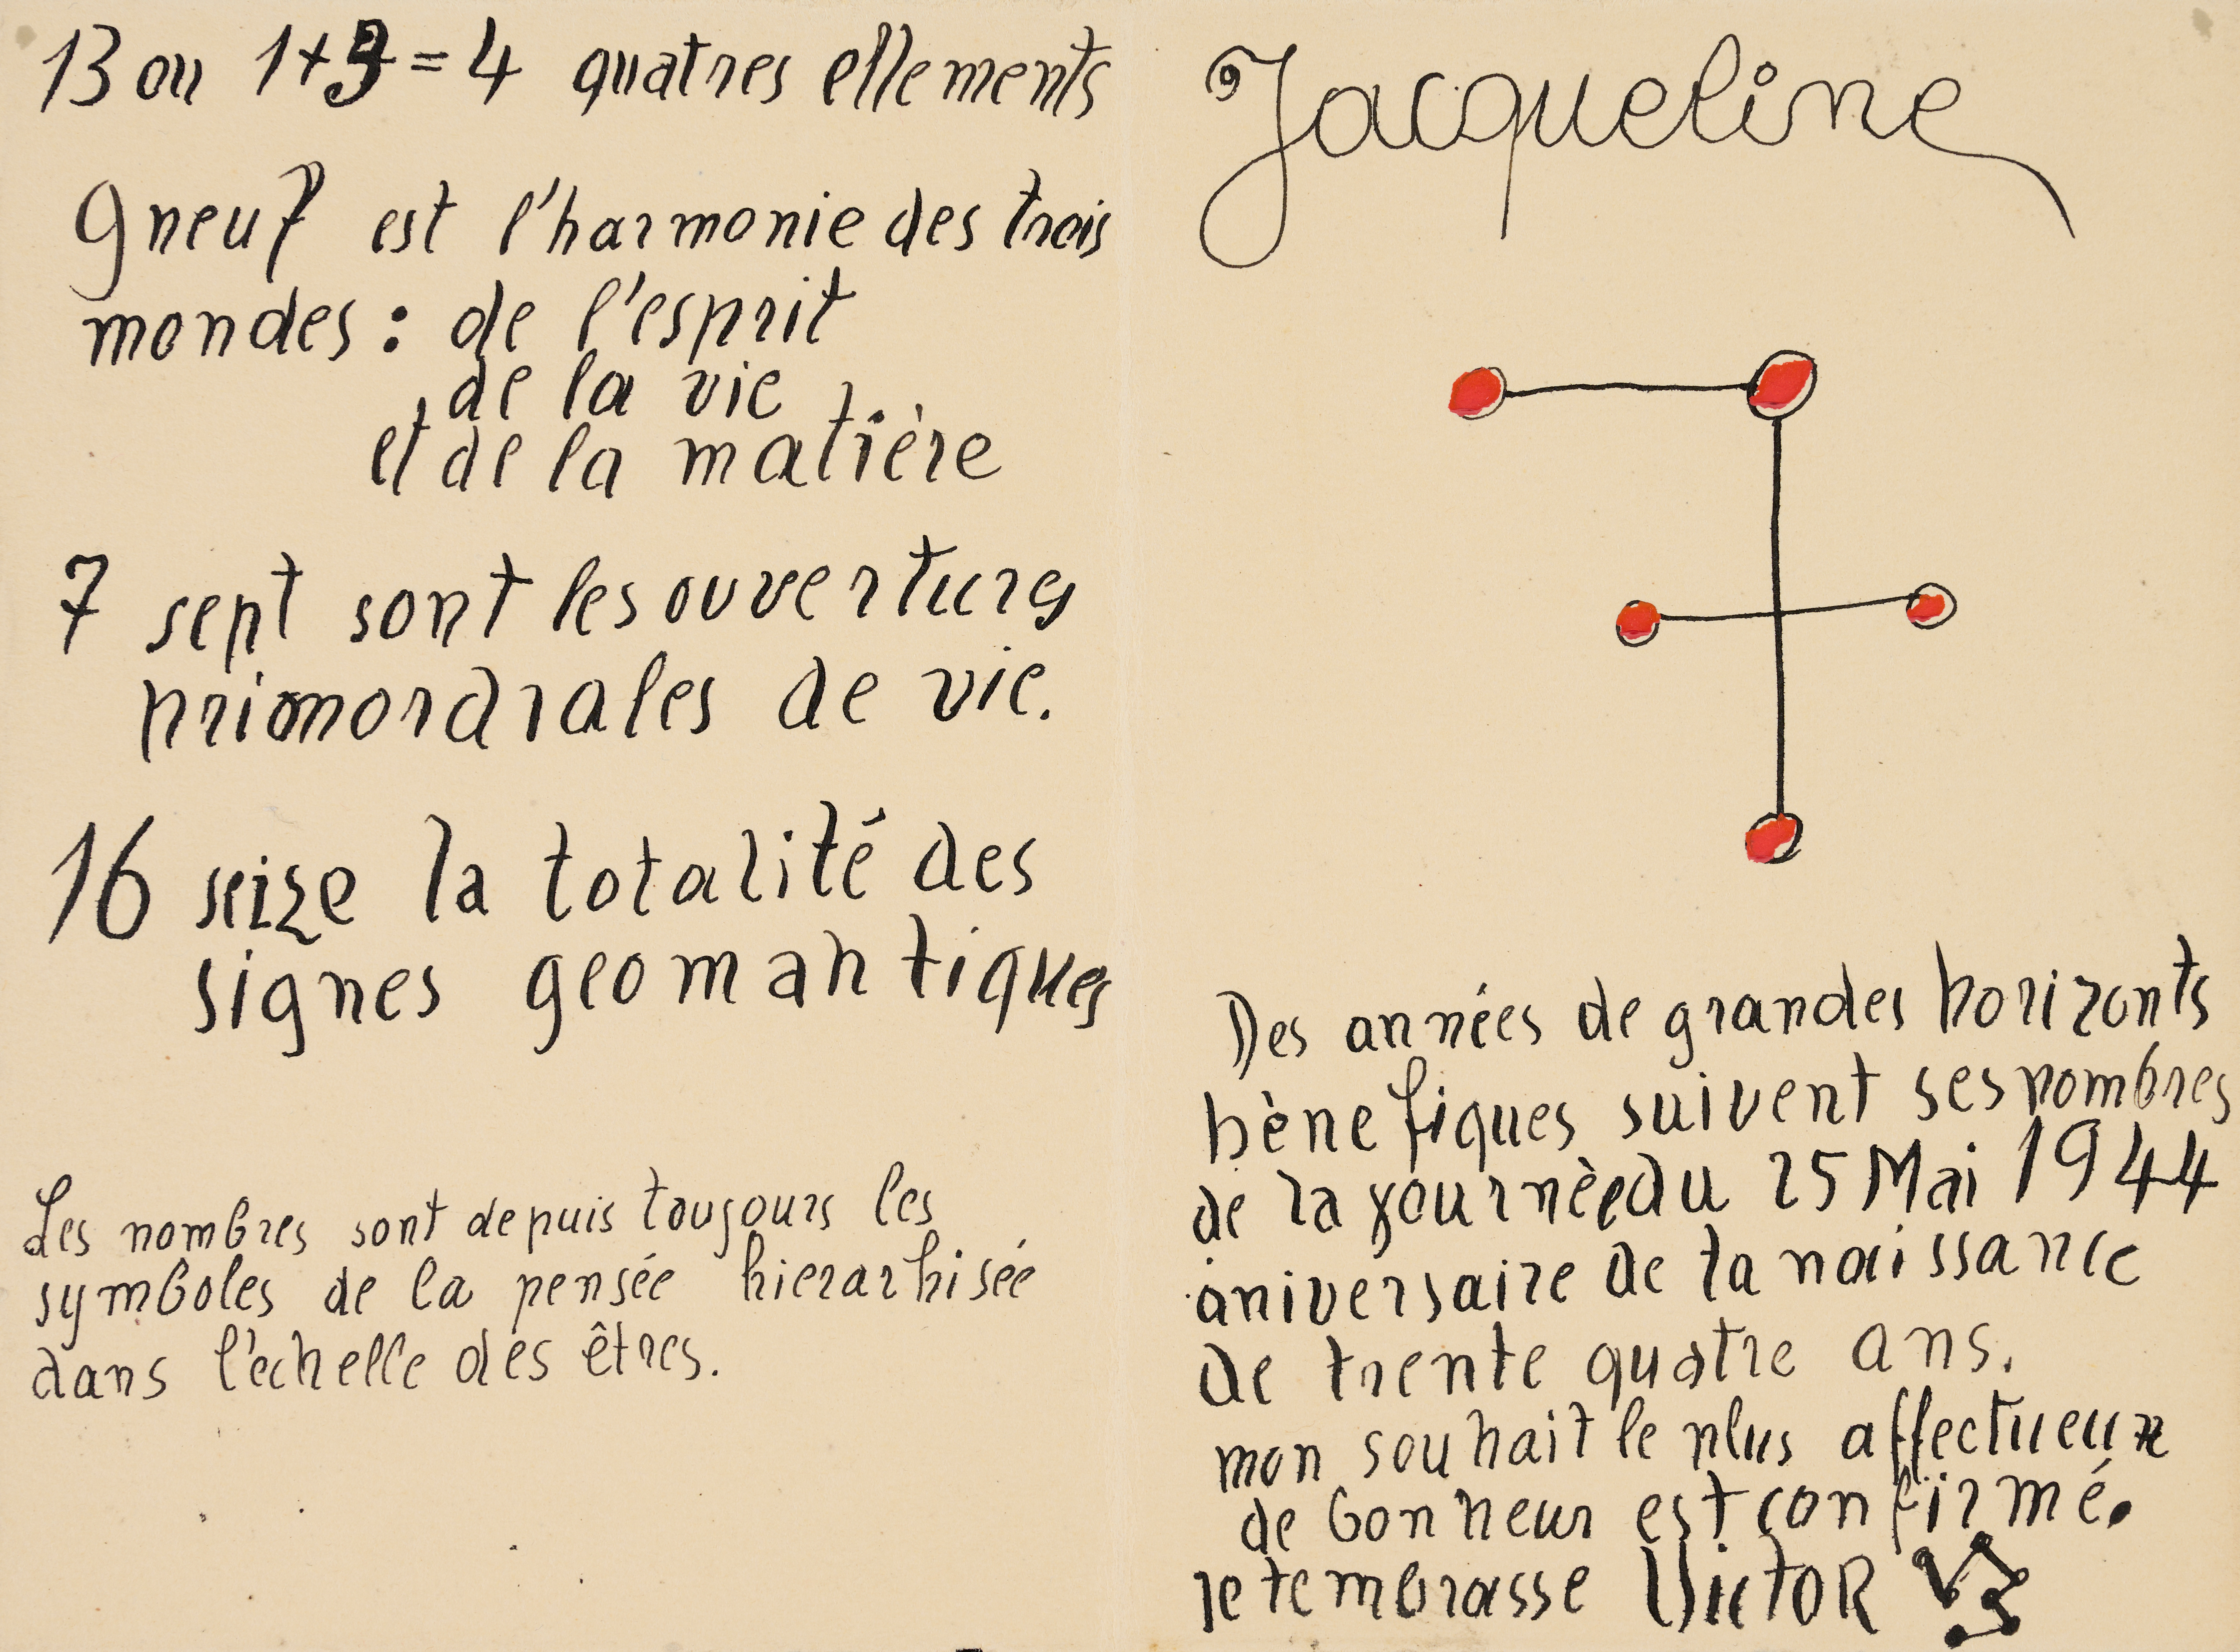 13 ou 1+3=4 quatres ellements
9 neuf est l'harmonie des trois
mondes : de l'esprit
de la vie
et de la matière
7 sept sont les ouvertures
primordiales de vie.
16 seize la totalité des
signes geomantiques
Les nombres sont depuis toujours les
symboles de la pensée hierarhisée
dans l'echelle des êtres.
Jacqueline
Des années de grandes horizonts
bènefiques suivent ses nombres
de la journèe du 25 Mai 1944
aniversaire de ta naissance
de trente quatre ans.
mon souhait le plus affectueux
de bonheur est confirmé.
je t'embrasse Victor VB